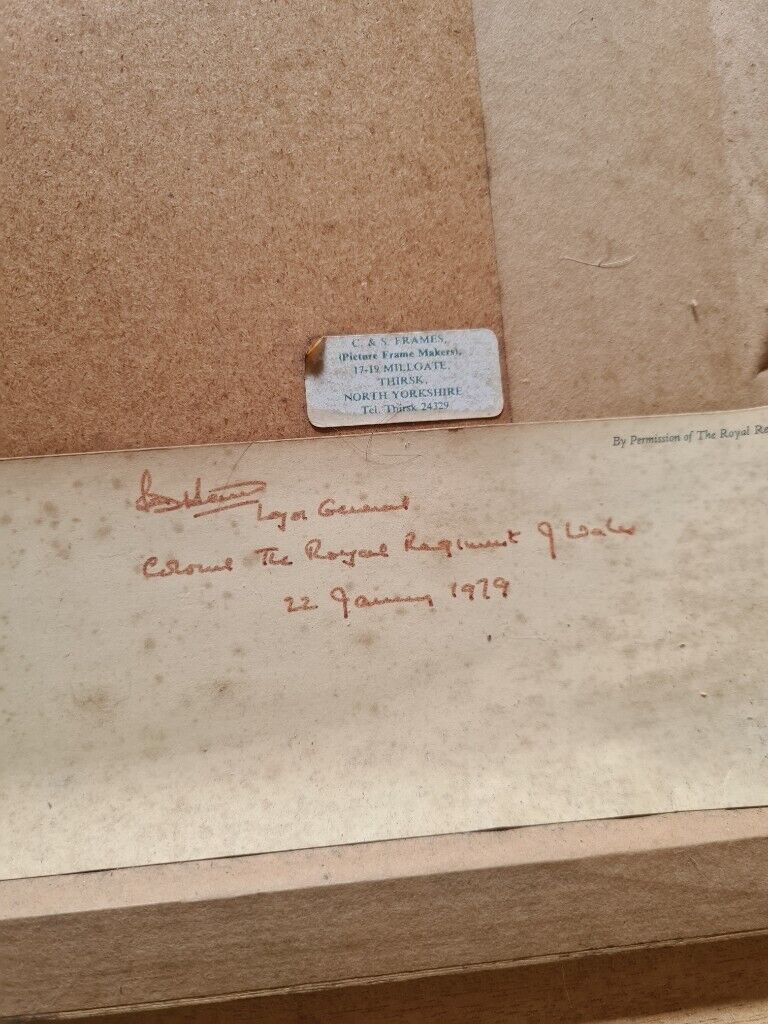 C. & S. FRAMES,
(Picture Frame Makers),
17-19 MILLGATE,
THIRSK,
NORTH YORKSHIRE
Tel. Thirsk 24329
By Permission of The Royal Re
General
Colonel The Royal Regiment of Wales
22 January 1979